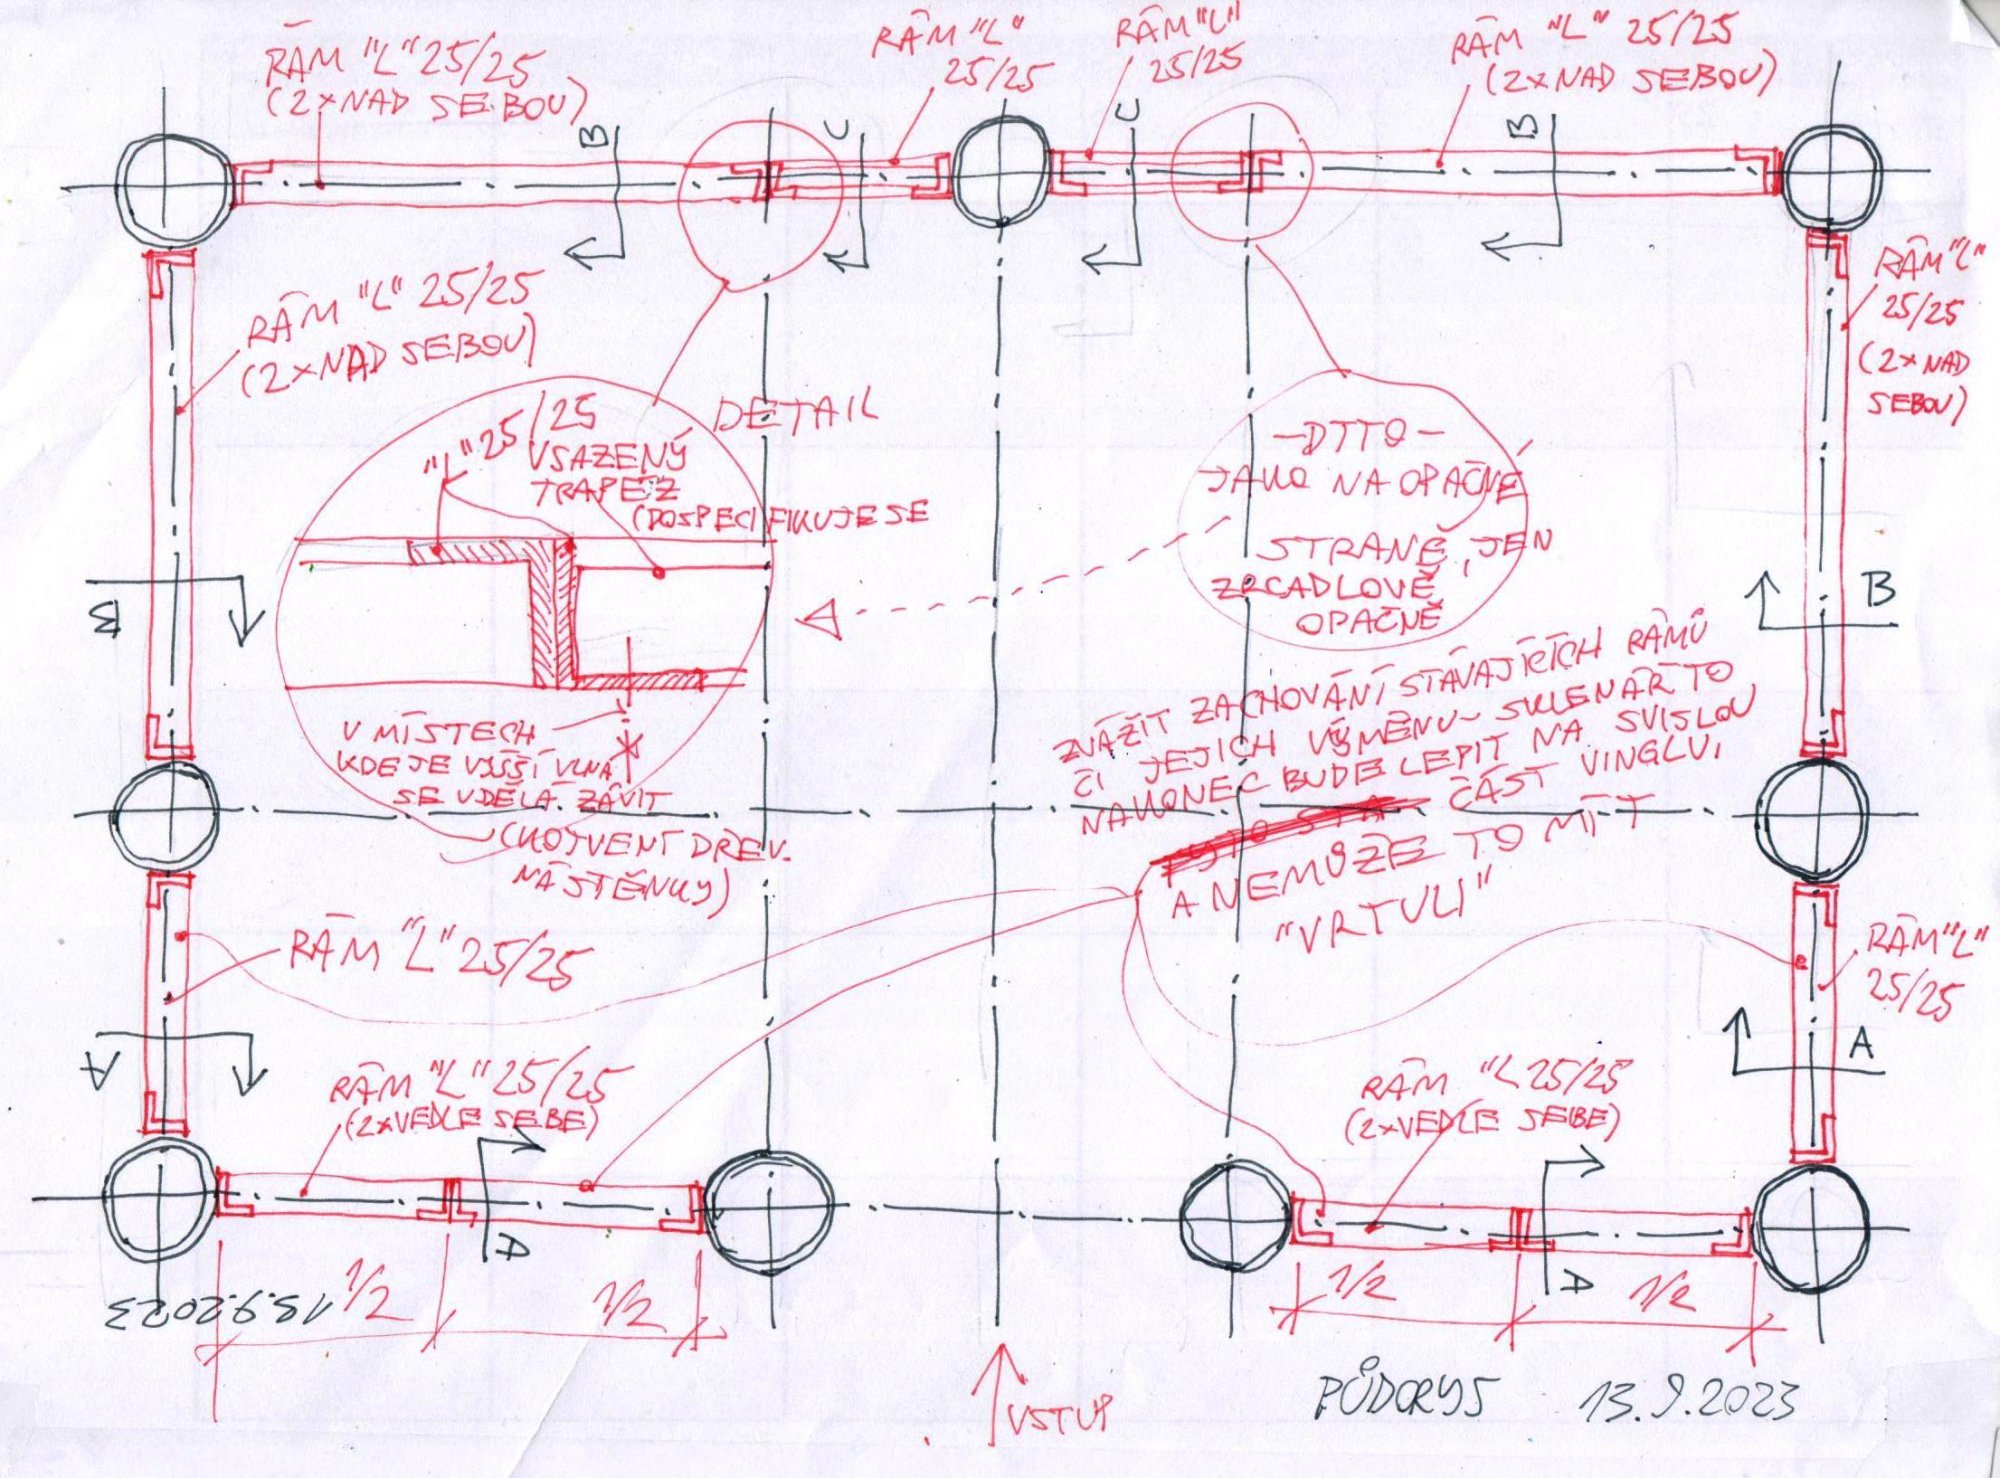 RÁM "L" 25/25
(2×NAD SEBOU)
RÁM "L"
25/25
RÁM "L"
25/25
RÁM "L" 25/25
(2×NAD SEBOU)
B
C
C
B
RÁM "L" 25/25
(2×NAD SEBOU)
RÁM "L"
25/25
(2×NAD
SEBOU)
DETAIL
"L" 25/25
VSAZENÝ
TRAPÉZ
(DOSPECIFIKUJE SE
-DTTO-
JAKO NA OPAČNÉ
STRANĚ, JEN
ZRCADLOVĚ
OPAČNĚ
B
B
V MÍSTECH
KDE JE VYŠŠÍ VLNA
SE UDĚLÁ ZÁVIT
(KOTVENÍ DŘEV.
NÁSTĚNKY)
ZVÁŽIT ZACHOVÁNÍ STÁVAJÍCÍCH RÁMŮ
ČI JEJICH VÝMĚNU - SKLENÁŘ TO
NAKONEC BUDE LEPIT NA SVISLOU
ČÁST VINGLU,
A NEMŮŽE TO MÍT
"VRTULI"
RÁM "L" 25/25
RÁM "L"
25/25
A
A
RÁM "L" 25/25
(2×VEDLE SEBE)
RÁM "L 25/25
(2×VEDLE SEBE)
A
A
1/2
1/2
1/2
1/2
13.9.2023
VSTUP
PŮDORYS 13.9.2023